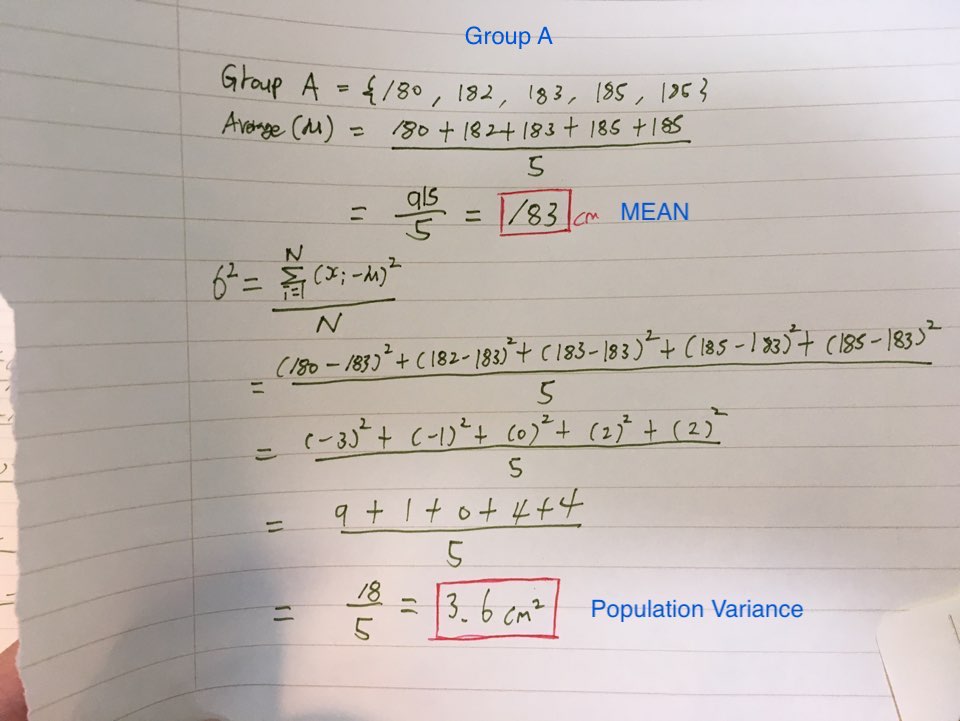 Group A
Group A = {180, 182, 183, 185, 185}
Average (μ) = (180 + 182 + 183 + 185 + 185) / 5
= 915 / 5 = 183 cm MEAN
σ² = Σᵢ₌₁ᴺ (xᵢ - μ)² / N
= ((180 - 183)² + (182 - 183)² + (183 - 183)² + (185 - 183)² + (185 - 183)²) / 5
= ((-3)² + (-1)² + (0)² + (2)² + (2)²) / 5
= (9 + 1 + 0 + 4 + 4) / 5
= 18 / 5 = 3.6 cm² Population Variance